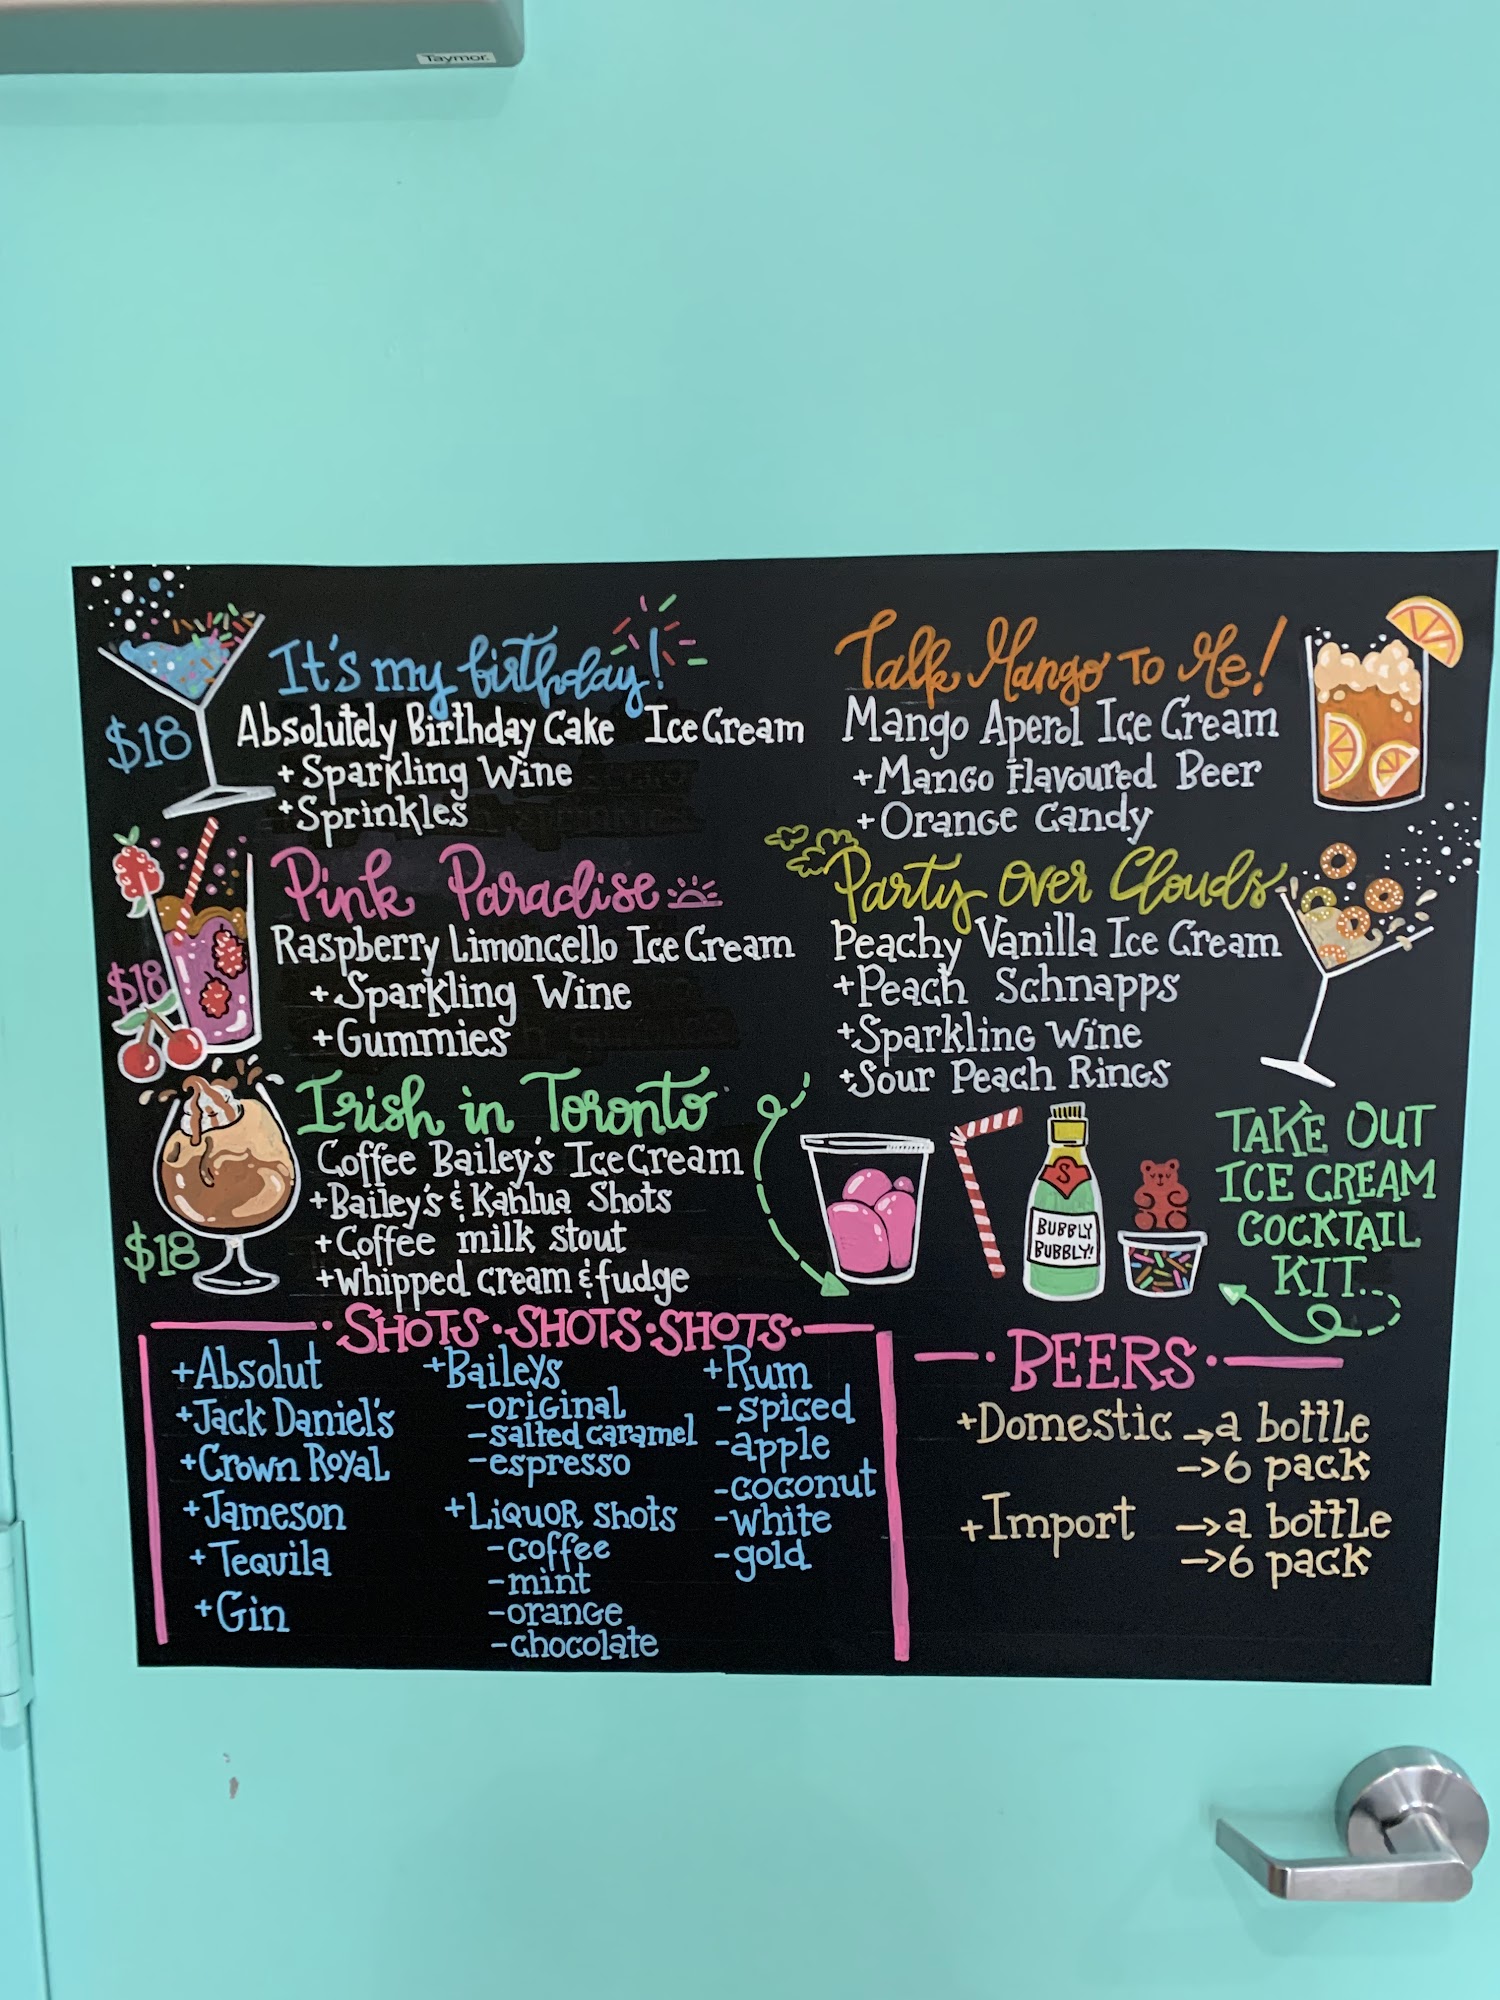 Taymor.
It's my birthday!
$18
Absolutely Birthday Cake Ice Cream
+ Sparkling Wine
+ Sprinkles
Pink Paradise
$18
Raspberry Limoncello Ice Cream
+ Sparkling Wine
+ Gummies
Irish in Toronto
Coffee Bailey's Ice Cream
+Bailey's & Kahlua Shots
+Coffee milk stout
+whipped cream & fudge
$18
Talk Mango To Me!
Mango Aperol Ice Cream
+Mango Flavoured Beer
+Orange Candy
Party Over Clouds
Peachy Vanilla Ice Cream
+Peach Schnapps
+Sparkling Wine
+Sour Peach Rings
TAKE OUT
ICE CREAM
COCKTAIL
KIT...
S
BUBBLY
BUBBLY!
SHOTS·SHOTS·SHOTS
+Absolut
+Jack Daniel's
+Crown Royal
+Jameson
+Tequila
+Gin
+Baileys
-original
-salted caramel
-espresso
+Liquor shots
-coffee
-mint
-orange
-chocolate
+Rum
-spiced
-apple
-coconut
-white
-gold
BEERS
+Domestic →a bottle
→6 pack
+Import →a bottle
→6 pack